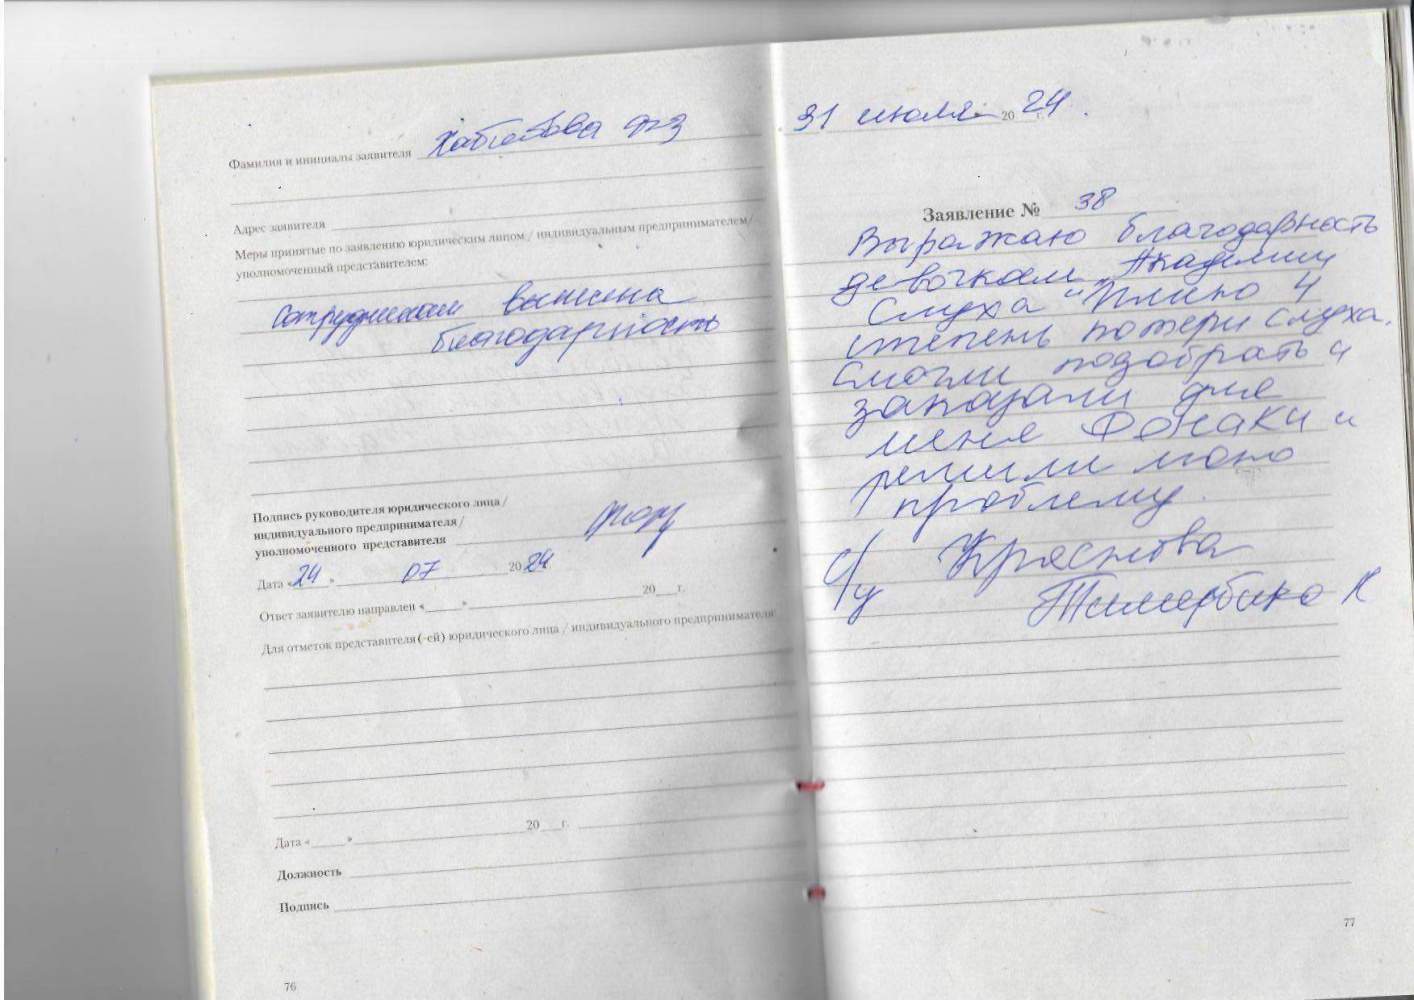 Фамилия и инициалы заявителя
Адрес заявителя
Меры принятые по заявлению юридическим лицом / индивидуальным предпринимателем /
уполномоченный представителем:
сотрудникам вынесена
благодарность
Подпись руководителя юридического лица /
индивидуального предпринимателя /
уполномоченного представителя
Дата «24» 07 2024
Ответ заявителю направлен «___» 20___г.
Для отметок представителя (-ей) юридического лица / индивидуального предпринимателя
Дата «___» 20___г.
Должность
Подпись
76
31 июля 2024 г.
Заявление № 38
Выражаю благодарность
девочкам "Академии
Слуха" 4
степень потери слуха.
Смогли подобрать и
заказали для
меня Фонаки и
решили мою
проблему.
с/у
77